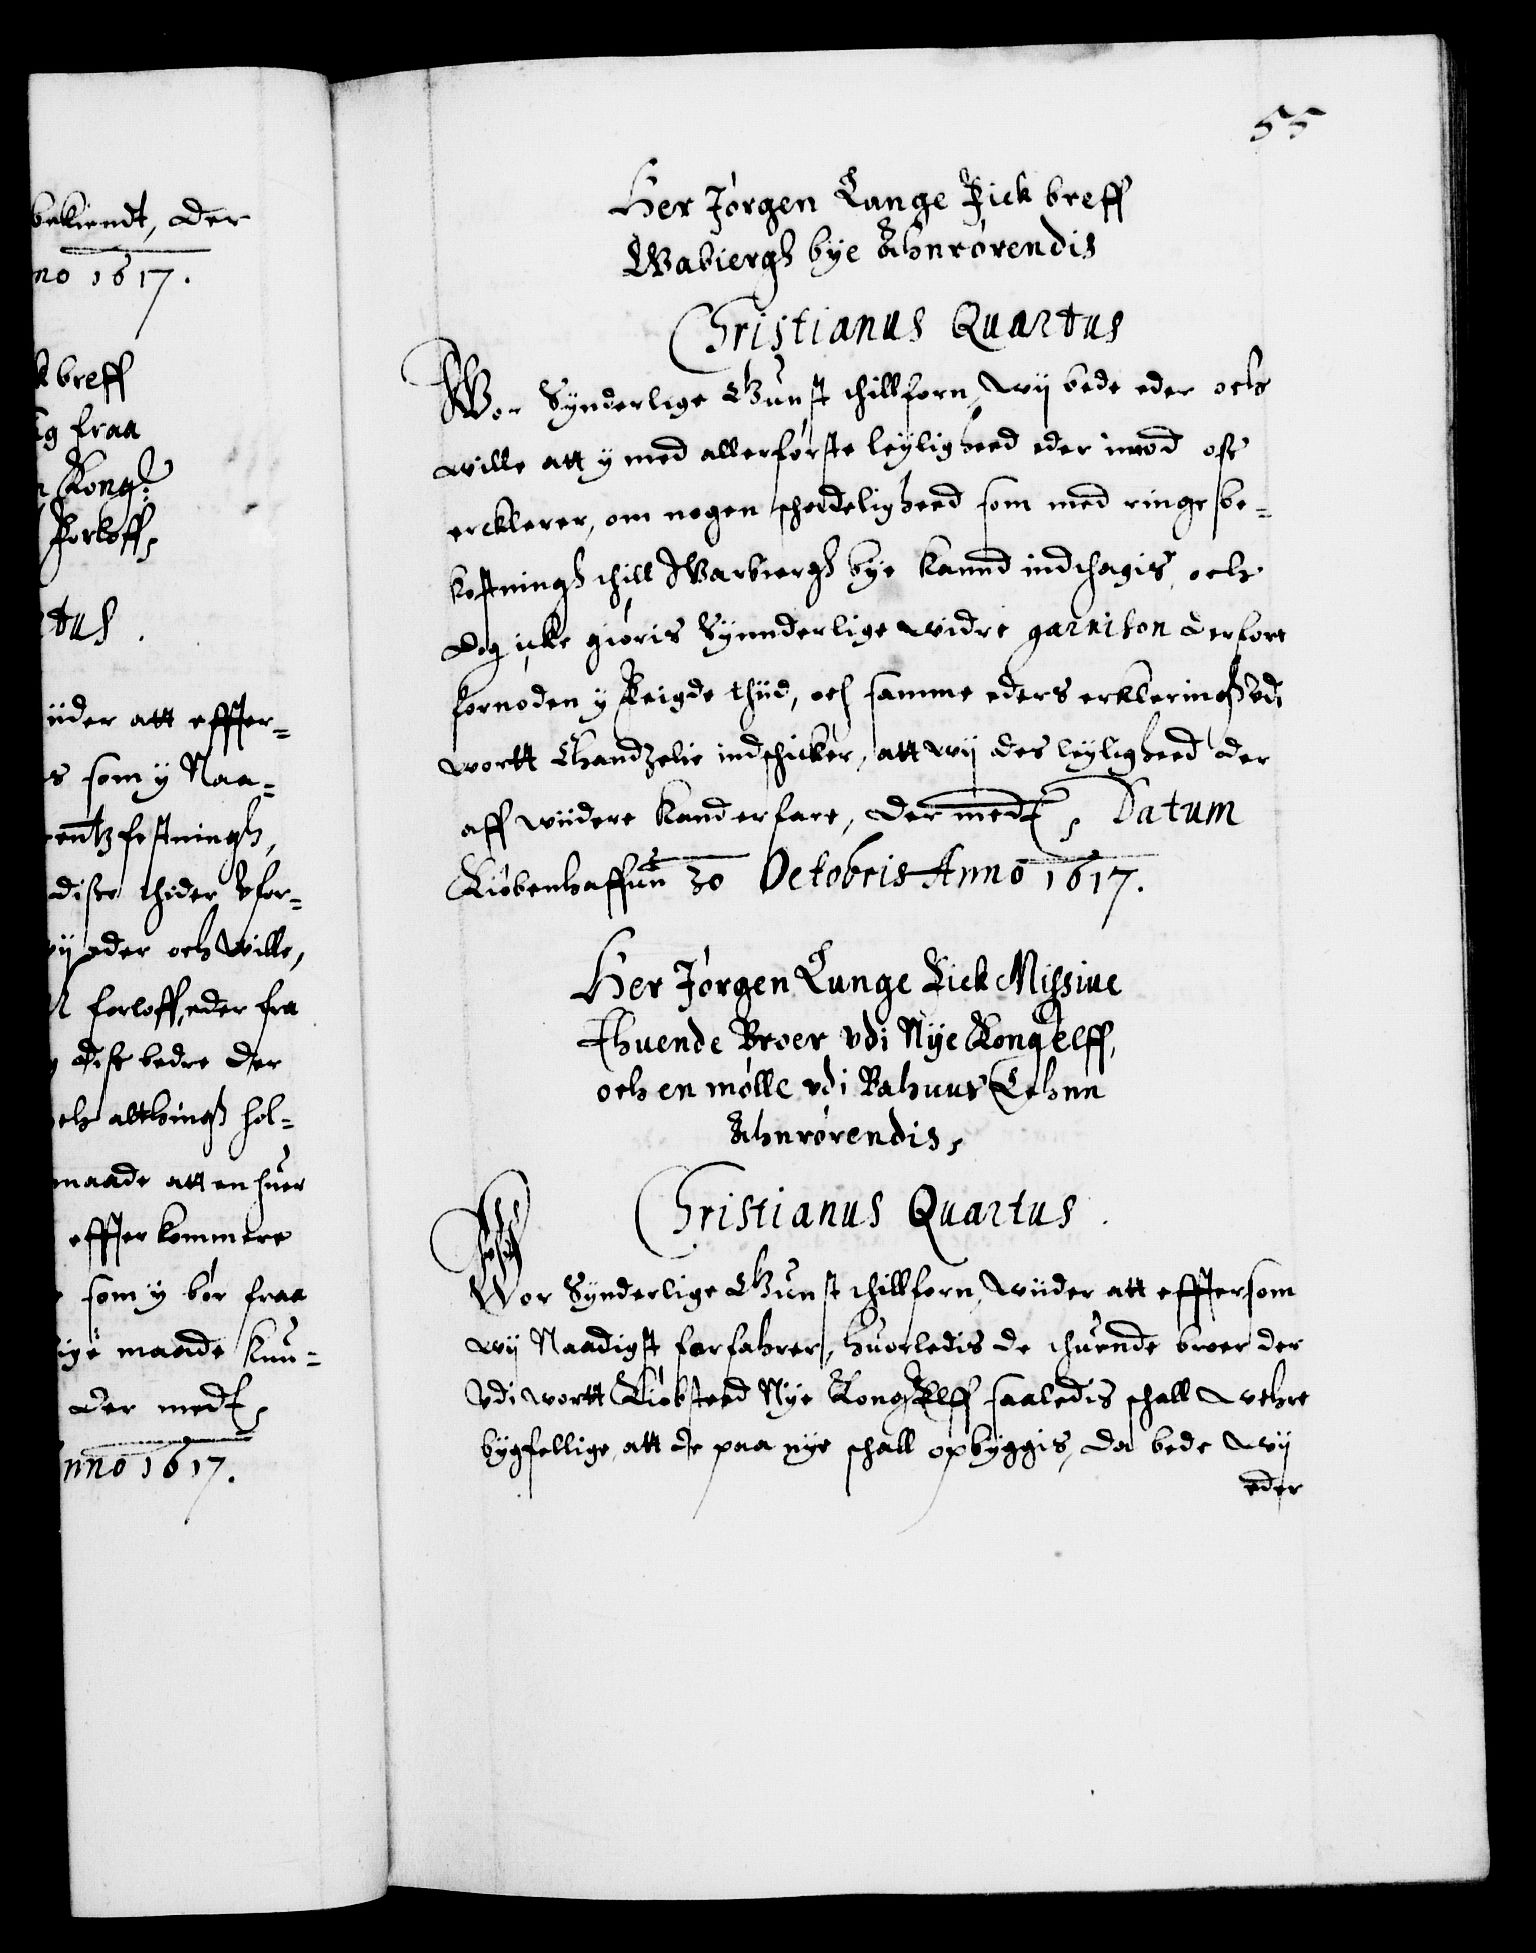 bekiendt, der
no 1617.
k breff
ig fraa
n Kong:
forloff,
tus.
üder att effter-
s som y Naa-
entz festningh,
disse thider vfor-
wij eder och wille,
forloff, eder fra
dise bedre der
och althingh hol-
maade att en huer
effter kommere
som y bør fraa
maade kun-
der medt,
nno 1617.
55
Her Jørgen Lunge Fick breff
Wabiergh bye Ahnrørendis
Christianus Quartus
Wor Synderlige Gunst thillforn, wij bede eder och
wille att y med allerførste leyligheed eder imod oss
ercklerer, om nogen scheedeligheed som med ringe be-
kostningh thill Warbiergh bye kannd indthagis, och
dog icke giøris Synnderlige widre garnison derfore
fornøden y Feigde thiid, och samme eders erkleringh vdi
wortt Chandzelie indschicker, att wij des leyligheed der
aff wiidere kand erfare, der medt, Datum
Kiøbenhaffun 30 Octobris Anno 1617.
Her Jørgen Lunge Fick Missiue
Thuende Broer vdi Nye Kongelff,
och en mølle vdi Bahuus Lehnn
Ahnrørendis,
Christianus Quartus.
Wor Synderlige Gunst thillforn, Wiider att efftersom
wij Naadigst forfahrer, huorledis de thuende broer der
vdi wortt Kiøbsteed Nye Kongelff saaledis schall wehre
bygfellige, att de paa nye schall opbyggis, da bede wij
eder